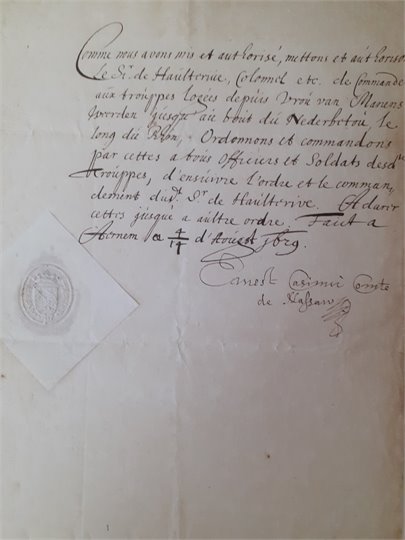 Comme nous avons mis et authorisé, mettons et authoriso
le Sr. de Haulterive, Colonnel etc. de Commande
aux trouppes logées depuis Vrou van Marien
Werden jusque au bout du Nederbetou le
long du Rhin, Ordonnons et commandons
par cettes a tous Officiers et Soldats desdtes
trouppes, d'ensuivre l'ordre et le comman,
dement dudt. Sr. de Haulterive. A durer
cettes jusque a aultre ordre. Faict a
Aernem ce 4/14 d'Aoust 1629.
Ernest Casimir Comte
de Nassaw